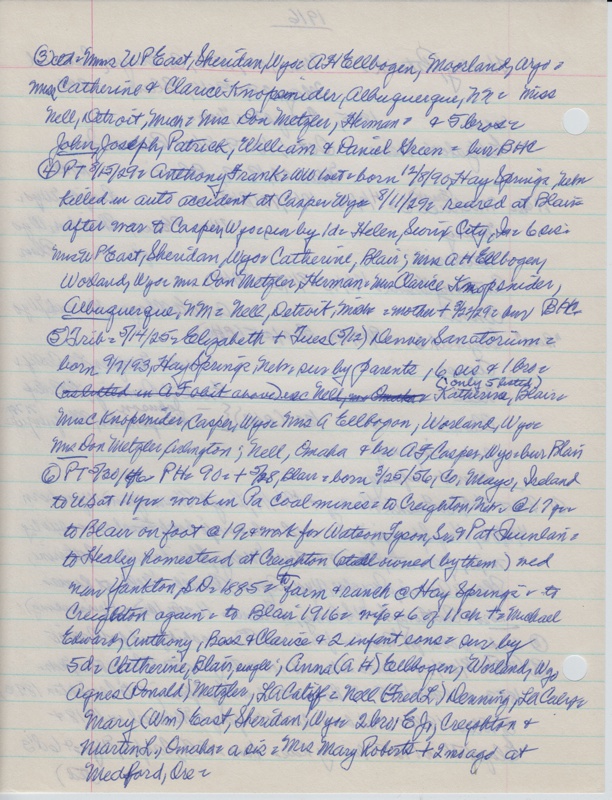 1916
③ cd = Mrs WP East, Sheridan, Wyo = A H Ellbogen, Moorland, Wyo =
Miss Catherine & Clarice Knopsnider, Albuquerque, NM = Miss
Nell, Detroit, Mich = Mrs Don Metzler, Herman = & 5 bros =
John, Joseph, Patrick, William & Daniel Green = bur BHC
④ PT 8/15/29 = Anthony Frank = WW Vet = born 12/8/90, Hay Springs, Nebr
killed in auto accident at Casper Wyo 8/11/29 = reared at Blair =
after war to Casper, Wyo = sur by 1d = Helen, Sioux City, Ia = 6 sis =
Mrs WP East, Sheridan, Wyo = Catherine, Blair; Mrs A H Ellbogen,
Worland, Wyo = Mrs Don Metzler, Herman = Mrs Clarice Knopsnider,
Albuquerque, NM = Nell, Detroit, Mich = mother + 3/2/29 = bur BHC
⑤ Trib = 5/14/25 = Elizabeth + Tues (5/12) Denver Sanatorium =
born 9/7/93, Hay Springs, Nebr = sur by parents, 6 sis & 1 bro =
(only 5 listed)
(as listed in AF obit above) Katherine, Blair =
Mrs C Knopsnider, Casper, Wyo = Mrs A Ellbogen, Worland, Wyo =
Mrs Don Metzler, Arlington; Nell, Omaha & bro AF Casper, Wyo = bur Blair
⑥ PT 5/30/ PH = 90 = + 5/28, Blair = born 3/25/56, Co. Mayo, Ireland
to US at 11 yr = work in Pa coal mines = to Creighton, Nebr @ 17 yr
to Blair on foot @ 19 = work for Watson Tyson, Sr & Pat Quinlan =
to Healey Homestead at Creighton (still owned by them) med
near Yankton, S.D. = 1885 = to farm & ranch @ Hay Springs = to
Creighton again = to Blair 1916 = wife & 6 of 11 ch + = Michael
Edward, Anthony, Bess & Clarice & 2 infant sons = sur by
5d = Catherine, Blair, single; Anna (A H) Ellbogen, Worland, Wyo
Agnes (Donald) Metzler, La Calif = Nell (Fred L.) Denning, La Calif =
Mary (Wm) East, Sheridan, Wyo = 2 bro; E J, Creighton &
Martin L, Omaha = a sis = Mrs Mary Roberts + 2 mo ago at
Medford, Ore =